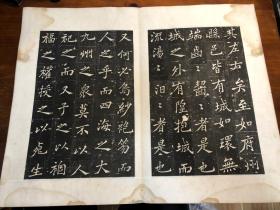 其左右矣至如府州
縣邑皆有城如環無
端齒〻齧〻者是也
城之外有隍抱城而
流湯〻汩〻者是也
又何必烏紗袍笏而
人之乎而四海之大
九州之衆莫不以人
祀之而又予之以禍
福之權授之以死生